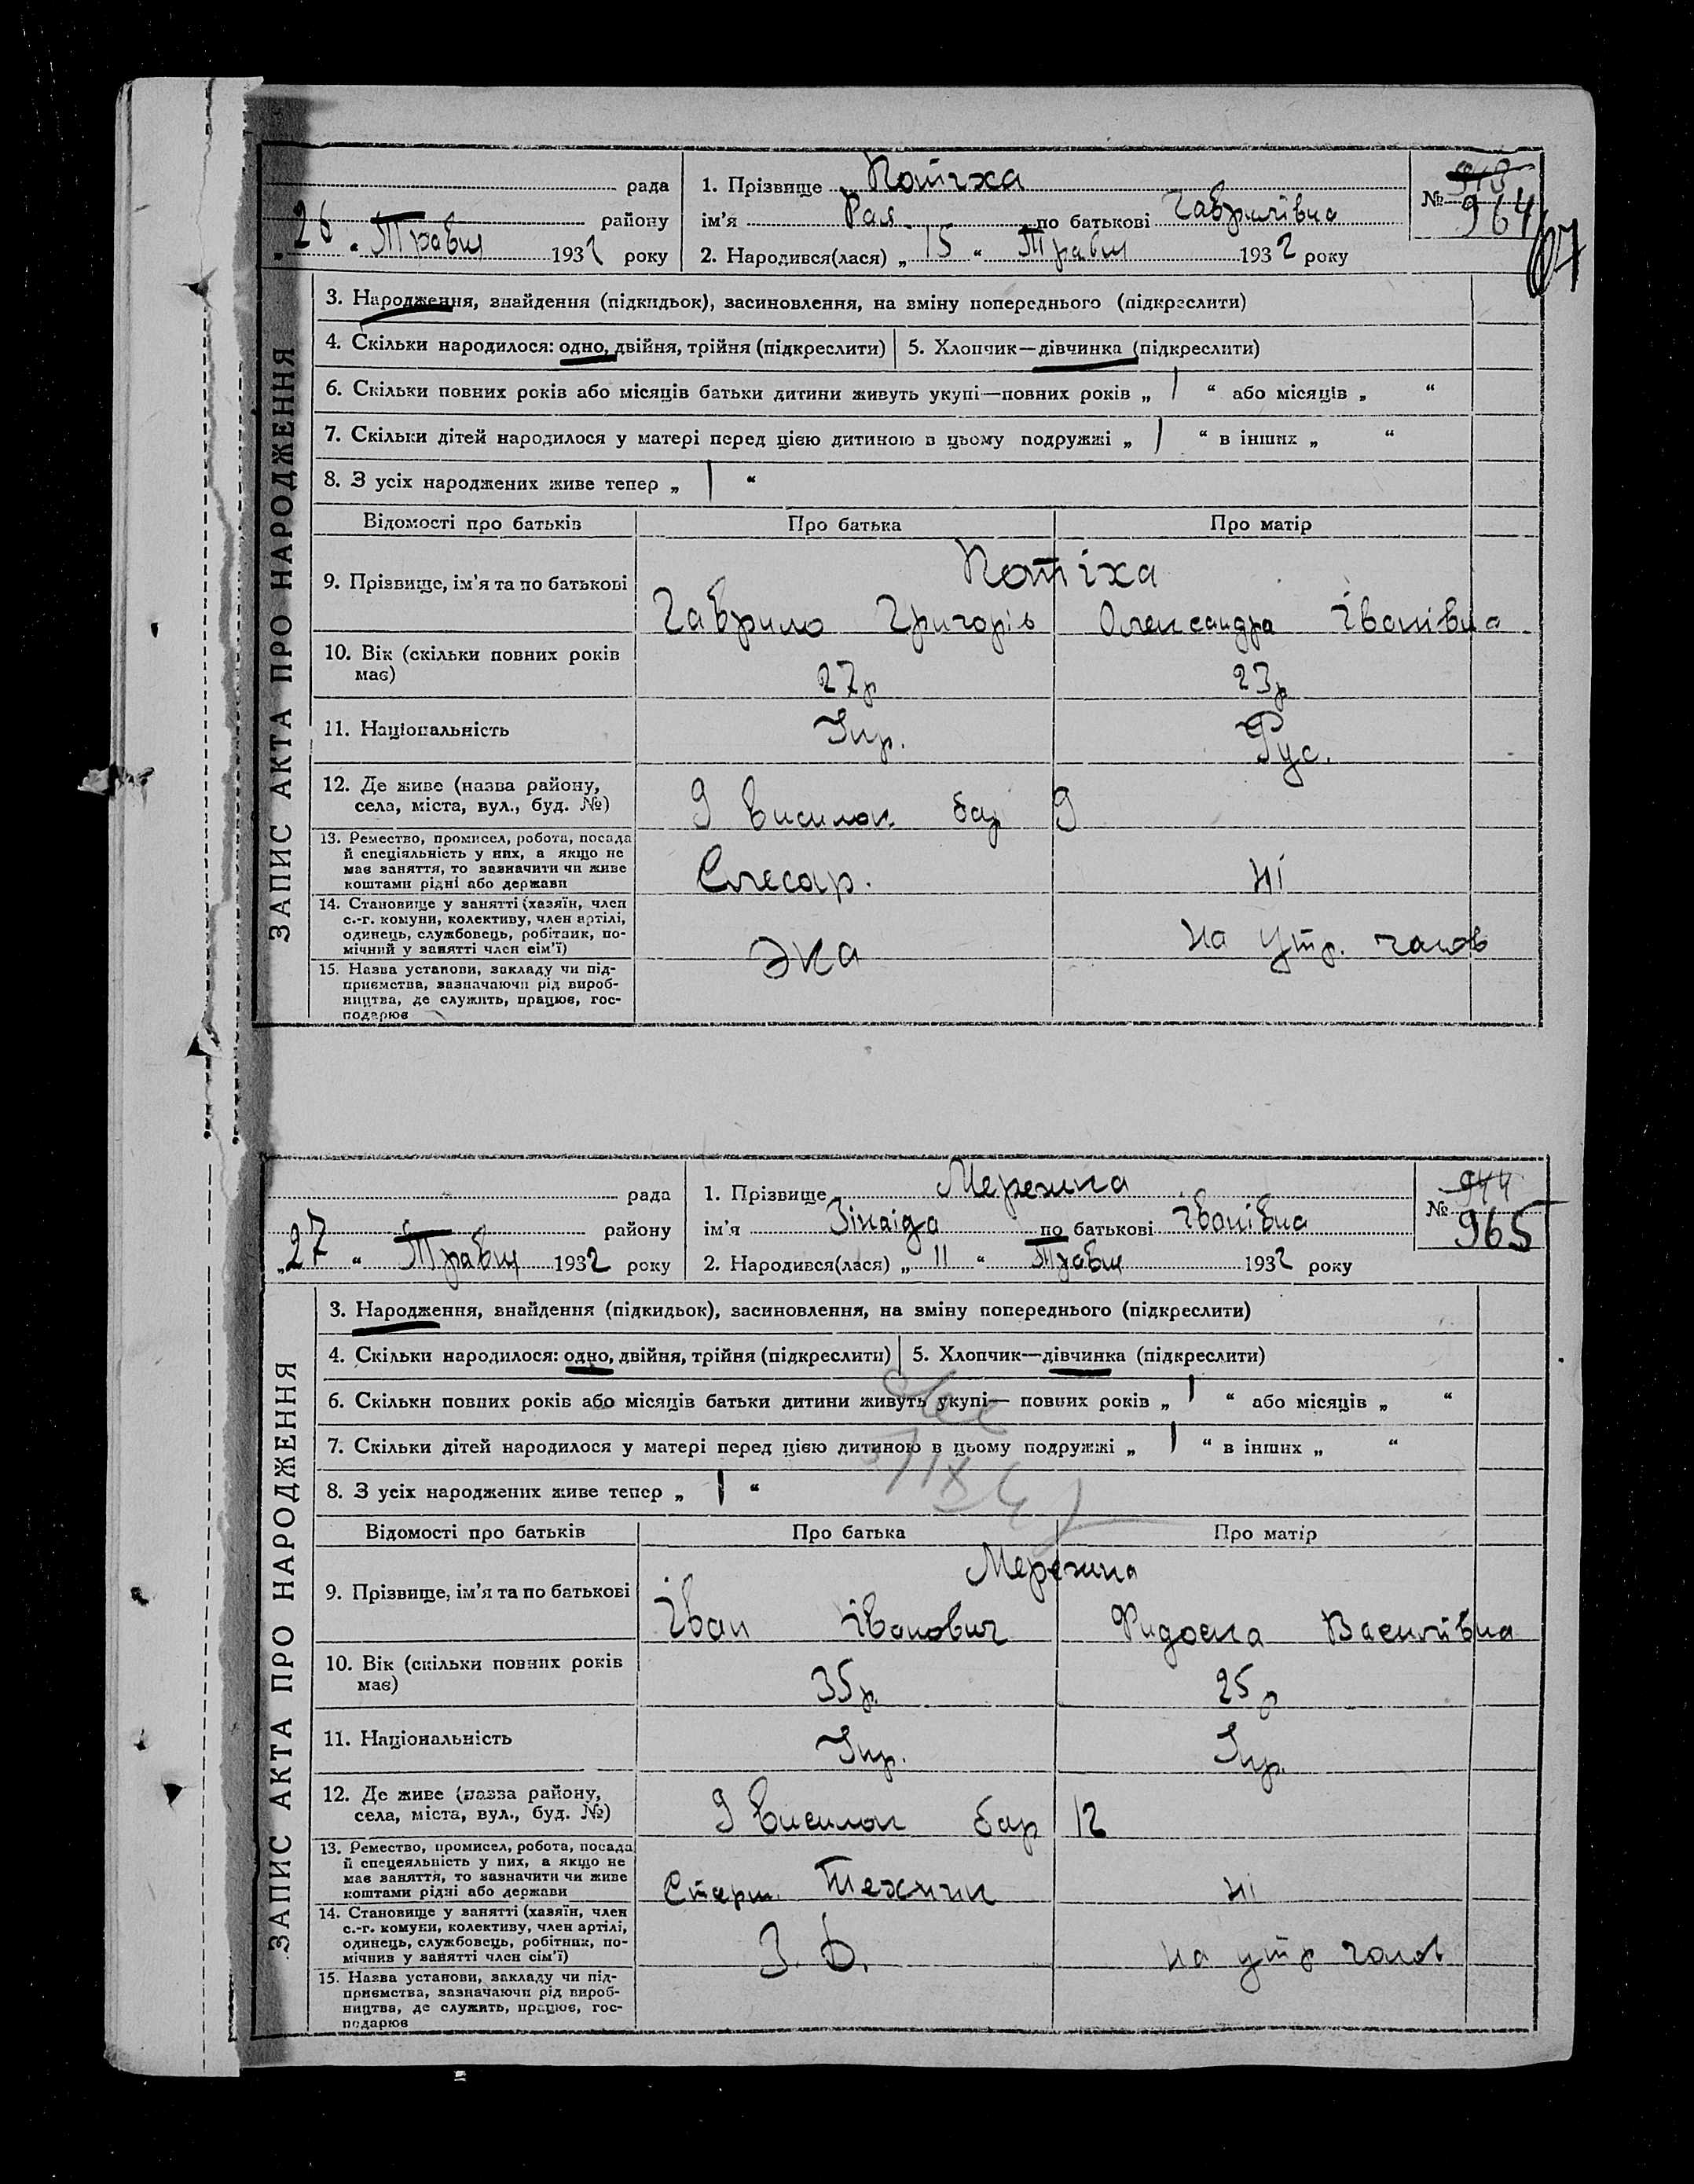 рада
1. Прізвище Потіха
№ 943 964
району
ім'я Рая по батькові Гаврилівна
67
26 " Травня 1932 року
2. Народився(лася) „ 15 " Травня 1932 року
ЗАПИС АКТА ПРО НАРОДЖЕННЯ
3. Народження, знайдення (підкидьок), засиновлення, на зміну попереднього (підкреслити)
4. Скільки народилося: одно, двійня, трійня (підкреслити)
5. Хлопчик—дівчинка (підкреслити)
6. Скільки повних років або місяців батьки дитини живуть укупі—повних років „ 1 " або місяців „ "
7. Скільки дітей народилося у матері перед цією дитиною в цьому подружжі „ 1 " в інших „ "
8. З усіх народжених живе тепер „ 1 "
Відомості про батьків
Про батька
Про матір
9. Прізвище, ім'я та по батькові
Потіха
Гаврило Григорів
Олександра Іванівна
10. Вік (скільки повних років має)
27р
23р
11. Національність
Укр.
Рус.
12. Де живе (назва району,
села, міста, вул., буд. №)
9 висилок бар 9
13. Ремество, промисел, робота, посада
й спеціяльність у них, а якщо не
має заняття, то зазначити чи живе
коштами рідні або держави
Слесар.
ні
14. Становище у занятті (хазяїн, член
с.-г. комуни, колективу, член артілі,
одинець, службовець, робітник, по-
мічний у занятті член сім'ї)
на утр. голов
15. Назва установи, закладу чи під-
приємства, зазначаючи рід вироб-
ництва, де служить, працює, гос-
подарює
эка
рада
1. Прізвище Мережина
№ 944 965
району
ім'я Зінаіда по батькові Іванівна
„ 27 " Травня 1932 року
2. Народився(лася) „ 11 " Травня 1932 року
ЗАПИС АКТА ПРО НАРОДЖЕННЯ
3. Народження, знайдення (підкидьок), засиновлення, на зміну попереднього (підкреслити)
4. Скільки народилося: одно, двійня, трійня (підкреслити)
5. Хлопчик—дівчинка (підкреслити)
6. Скільки повних років або місяців батьки дитини живуть укупі— повних років „ 1 " або місяців „ "
7. Скільки дітей народилося у матері перед цією дитиною в цьому подружжі „ 1 " в інших „ "
8. З усіх народжених живе тепер „ 1 "
Відомості про батьків
Про батька
Про матір
9. Прізвище, ім'я та по батькові
Мережина
Іван Іванович
Василівна
10. Вік (скільки повних років має)
35р.
25р
11. Національність
Укр.
Укр.
12. Де живе (назва району,
села, міста, вул., буд. №)
9 висилок бар 12
13. Ремество, промисел, робота, посада
й спецеяльність у них, а якщо не
має заняття, то зазначити чи живе
коштами рідні або держави
Старш. Технік
ні
14. Становище у занятті (хазяїн, член
с.-г. комуни, колективу, член артілі,
одинець, службовець, робітник, по-
мічнив у занятті член сім'ї)
на утр голов
15. Назва установи, закладу чи під-
приємства, зазначаючи рід вироб-
ництва, де служить, працює, гос-
подарює